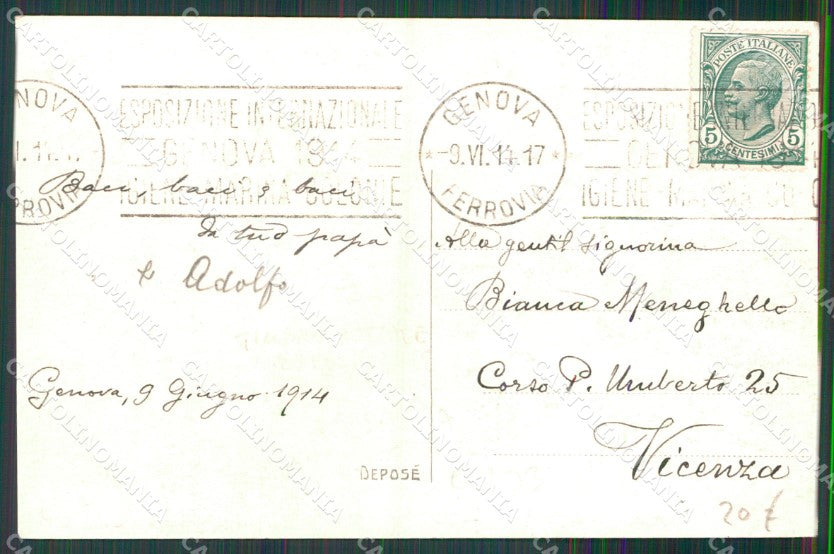 GENOVA
FERROVIA
ESPOSIZIONE INTERNAZIONALE
GENOVA 1914
IGIENE MARINA COLONIE
GENOVA
-9.VI.14.17
FERROVIA
ESPOSIZIONE INTERNAZIONALE
GENOVA 1914
IGIENE MARINA COLONIE
POSTE ITALIANE
5 5
CENTESIMI
Baci, baci e baci
da tuo papà
e Adolfo
Genova, 9 Giugno 1914
DEPOSÉ
Alla gentil signorina
Bianca Meneghello
Corso P. Umberto 25
Vicenza
20 €
CARTOLINOMANIA